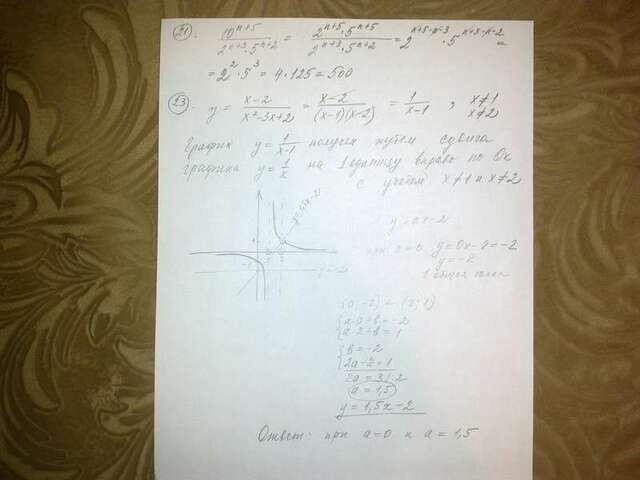 21. 10^(n+5) / (2^(n+3)·5^(n+2)) = (2^(n+5)·5^(n+5)) / (2^(n+3)·5^(n+2)) = 2^(n+5-n-3) · 5^(n+5-n-2) =
= 2²·5³ = 4·125 = 500
23. y = (x-2) / (x²-3x+2) = (x-2) / ((x-1)(x-2)) = 1/(x-1) , x≠1
x≠2
График y = 1/(x-1) получен путём сдвига
графика y = 1/x на 1 единицу вправо по Ox
с учётом x≠1 и x≠2
y=1,5x-2
y = ax-2
при a=0 y=0x-2=-2
y=-2
1 общая точка
1
-1
y=-2
(0;-2) (2;1)
{a·0+b=-2
{a·2+b=1
{b=-2
{2a-2=1
2a=3|:2
a=1,5
y=1,5x-2
Ответ: при a=0 и a=1,5